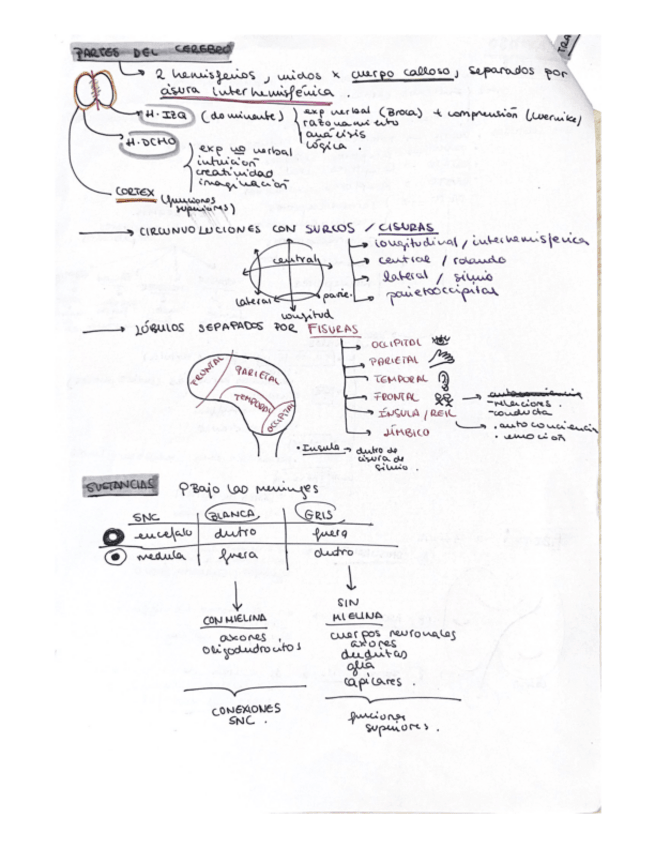 PARTES DEL CEREBRO
TRA
2 hemisferios, unidos x cuerpo calloso, separados por
cisura interhemisférica.
H. IZQ (dominante) exp verbal (Broca) + comprensión (Wernike)
razonamiento
análisis
lógica.
H. DCHO
exp no verbal
intuición
creatividad
imaginación
CORTEX (funciones
superiores)
CIRCUNVOLUCIONES CON SURCOS / CISURAS
longitudinal / interhemisférica
central / rolando
lateral / silvio
parietooccipital
central
lateral
parie.
longitud
LÓBULOS SEPARADOS POR FISURAS
OCCIPITAL
PARIETAL
TEMPORAL
FRONTAL
ÍNSULA / REIL
LÍMBICO
autoconciencia
- relaciones.
- conducta
· autoconciencia
· emocion
FRONTAL
PARIETAL
TEMPORAL
OCCIPITAL
· Insula → dentro de
cisura de
silvio.
SUSTANCIAS Bajo las meninges
SNC BLANCA GRIS
encefalo dentro fuera
medula fuera dentro
CON MIELINA
axones
oligodendrocitos
SIN
MIELINA
cuerpos neuronales
axones
dendritas
glia
capilares.
CONEXIONES
SNC.
funciones
superiores.